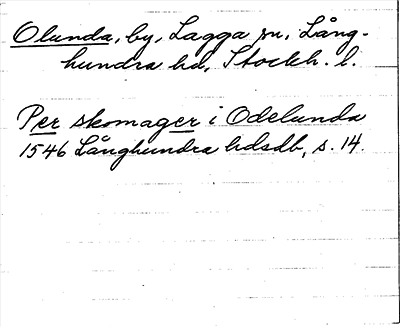 Olunda, by, Lagga sn, Lång-
hundra hd, Stockh. l.
Per skomager i Odelunda
1546 Långhundra hdsdb, s. 14.